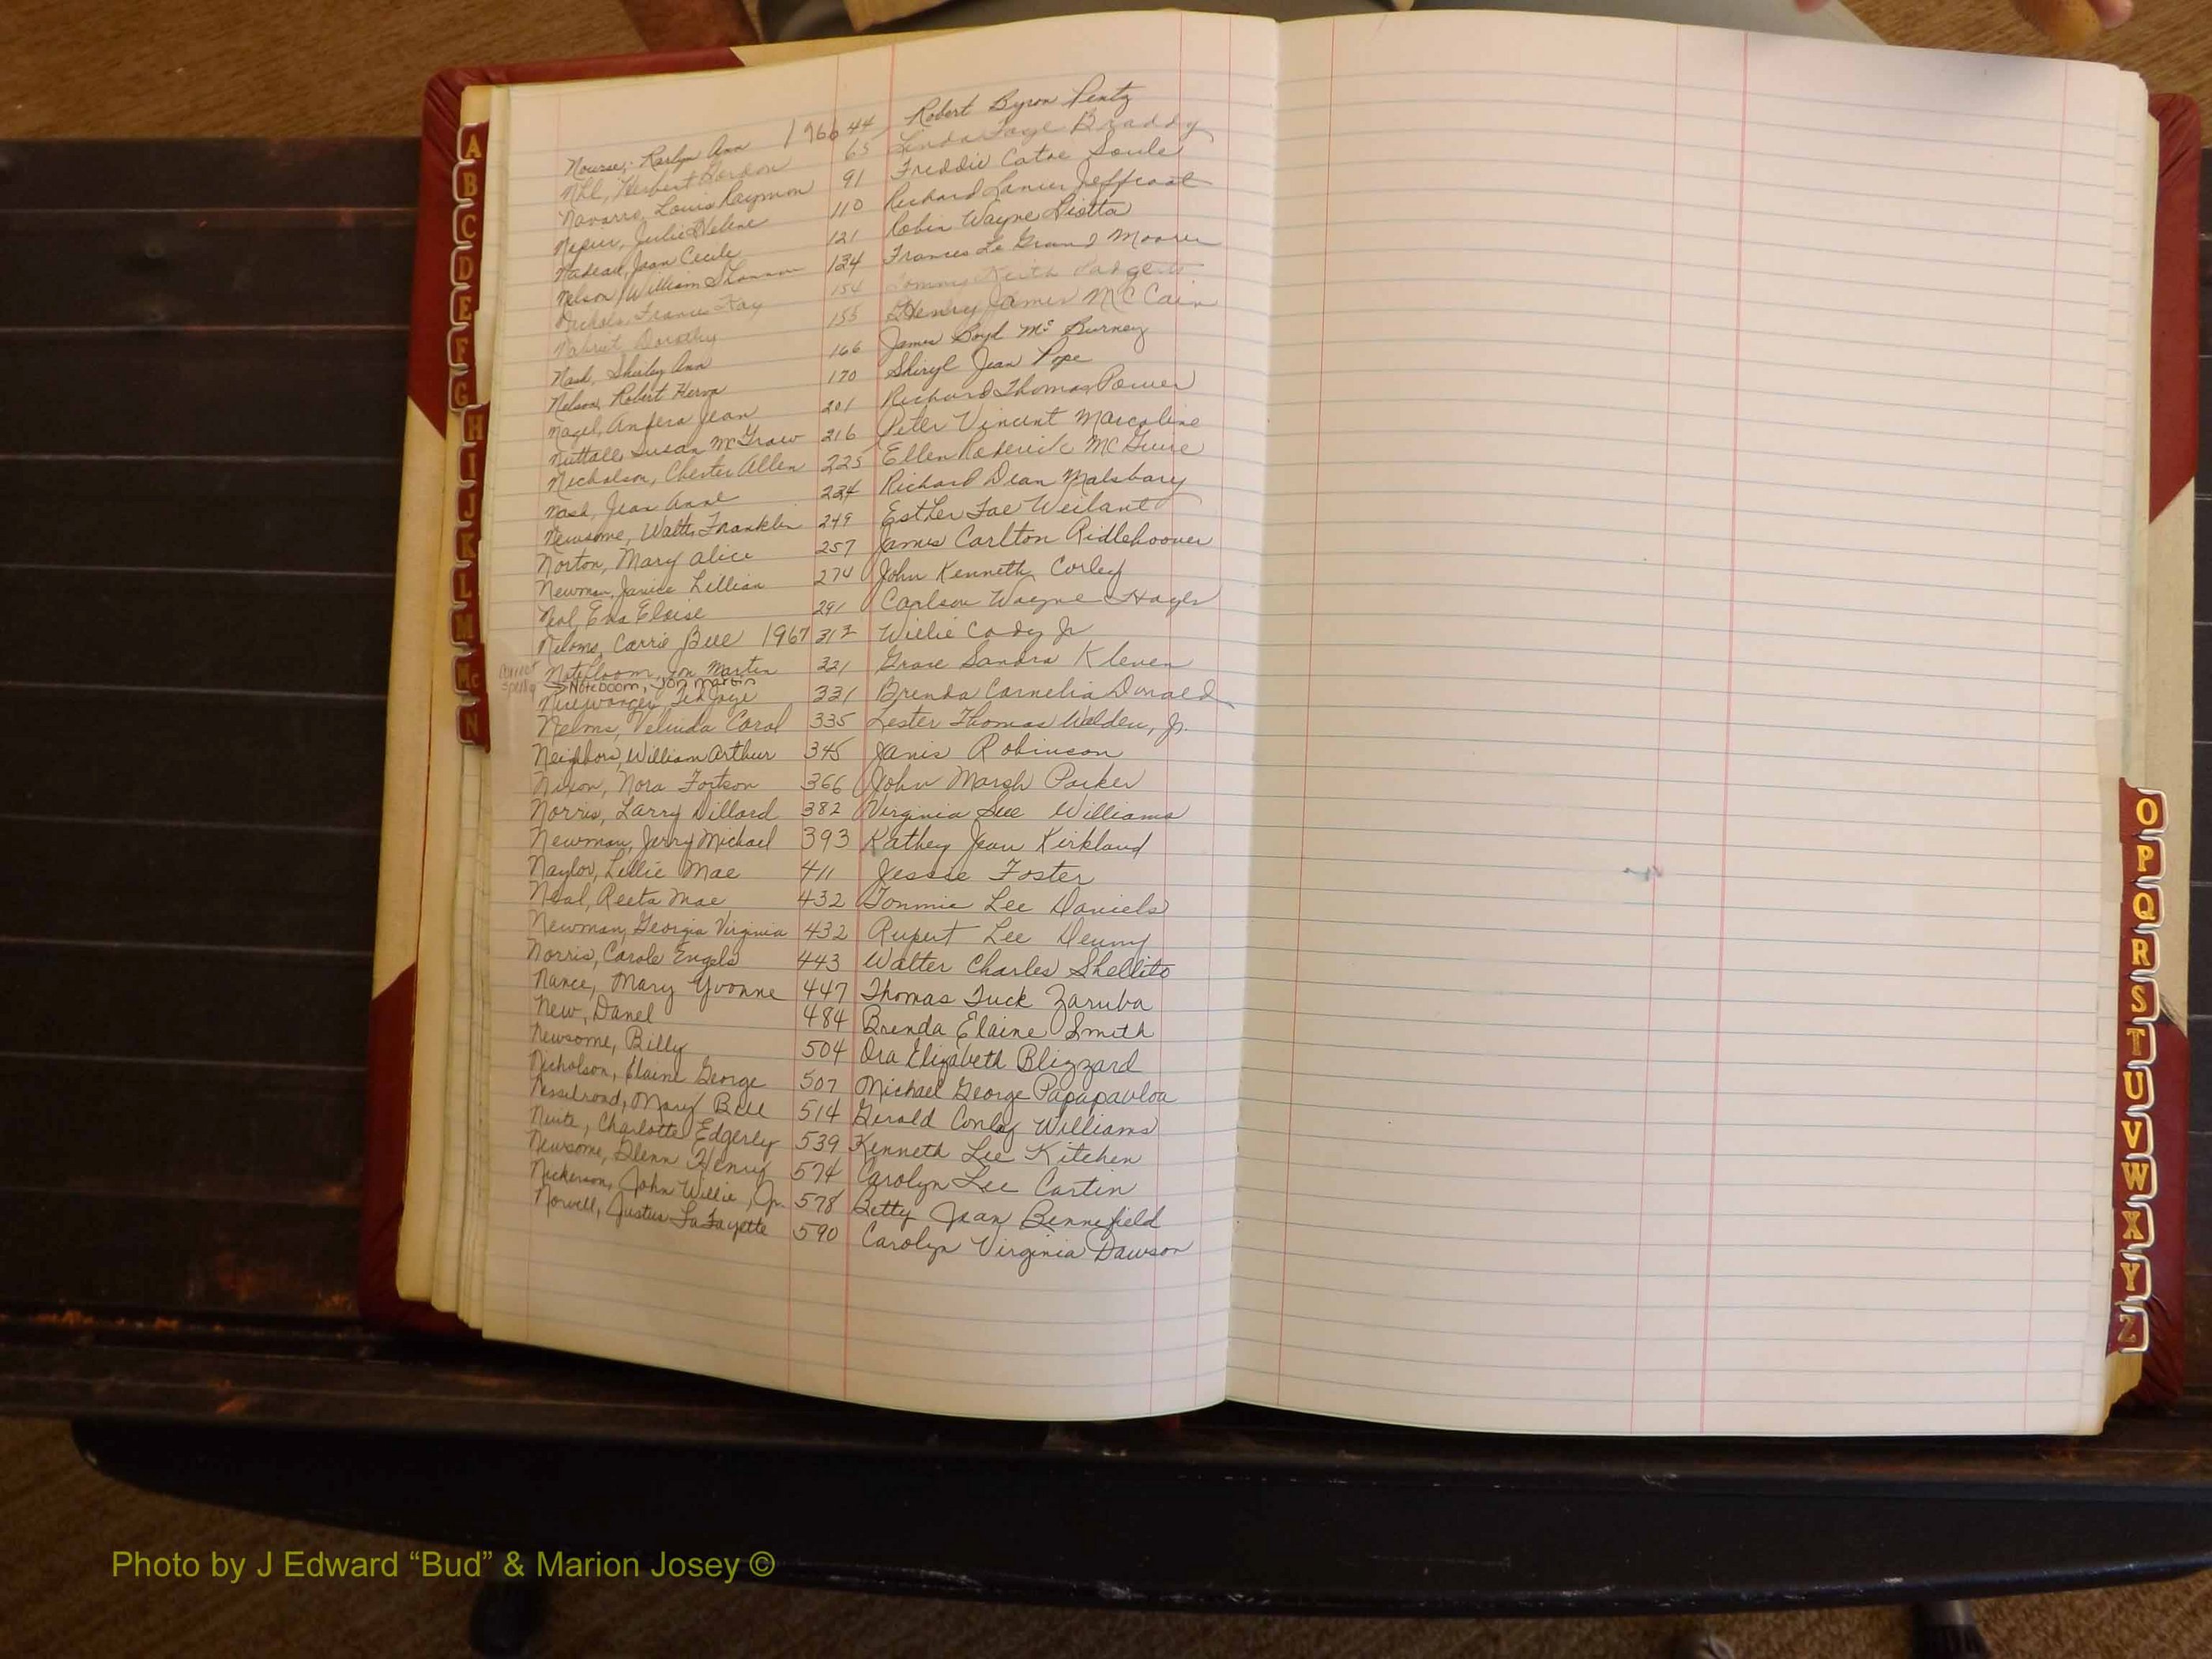 Nourse, Karlyn Ann 1966 44 Robert Byron Pentz
Herbert Gordon 65 Linda Faye Braddy
Navarro, Louis Raymon 91 Freddie Soule
Julie Helene 110 Richard Lanier Jeffcoat
Nadeau, Joan Cecile 121 Robin Wayne Liotta
Nelson, William Shannon 134 Frances Le Grand Moorer
Nichols, Frances Kay 154 Tommy Keith Padgett
Dorothy 155 Henry James McCain
Nash, Shirley Ann 166 James Boyd McBurney
Nelson, Robert 170 Sheryl Jean Pope
Nagel, Jean 201 Richard Thomas Power
Nuttall, Susan McGraw 216 Peter Vincent Marcoline
Nicholson, Chester Allen 225 Ellen Roderick McGuire
Nash, Jean Anne 234 Richard Dean Malsbary
Newsome, Walter Franklin 249 Esther Fae Weiland
Norton, Mary Alice 257 James Carlton Ridlehoover
Newman, Janice Lillian 274 John Kenneth Corley
Eva Eloise 291 Carlson Wayne
Neloms, Carrie Bell 1967 313 Willie Cody Jr
Jon Martin 321 Grace Sandra Kleven
correct spelling Noteboom, Jon Martin
331 Brenda Carnelia
Nelms, Velinda Carol 335 Lester Thomas Walden, Jr.
Neighbors, William Arthur 345 Janis Robinson
Nixon, Nora Fortson 366 John Marsh Parker
Norris, Larry Dillard 382 Virginia Sue Williams
Newman, Jerry Michael 393 Kathey Jean Kirkland
Naylor, Lillie Mae 411 Jessie Foster
Neal, Reeta Mae 432 Tommie Lee Daniels
Newman, Georgia Virginia 432 Rupert Lee Denny
Norris, Carole Engels 443 Walter Charles Shellito
Nance, Mary Yvonne 447 Thomas Tuck Zaruba
New, Danel 484 Brenda Elaine Smith
Newsome, Billy 504 Ora Elizabeth Blizzard
Nicholson, Elaine George 507 Michael George Papapavloa
Nesselroad, Mary Bell 514 Gerald Conley Williams
Charlotte Edgerly 539 Kenneth Lee Kitchen
Newsome, Glenn Henry 574 Carolyn Lee Cartin
Nickerson, John Willie, Jr. 578 Betty Jean Bennefield
Norvell, Justus LaFayette 590 Carolyn Virginia Dawson
A
B
C
D
E
F
G
H
I
J
K
L
M
Mc
N
O
P
Q
R
S
T
U
V
W
X
Y
Z
Photo by J Edward “Bud” & Marion Josey ©